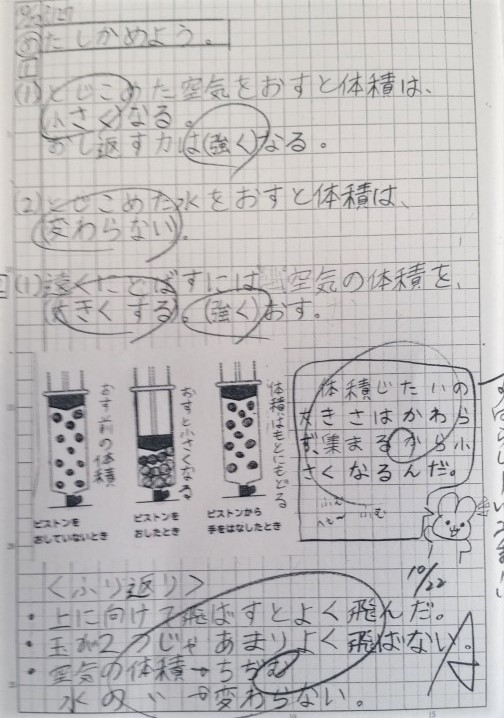 たしかめよう。
(1)とじこめた空気をおすと体積は、
(小さく)なる。
おし返す力は(強く)なる。
(2)とじこめた水をおすと体積は、
(変わらない)。
(1)遠くにとばすには 空気の体積を、
(大きくする)。(強く)おす。
おす前の体積
おすと小さくなる
体積はもとにもどる
ピストンを
おしていないとき
ピストンを
おしたとき
ピストンから
手をはなしたとき
体積じたいの
大きさはかわら
ず、集まるから小
さくなるんだ。
10/22
<ふり返り>
・上に向けて飛ばすとよく飛んだ。
・玉が2つじゃあまりよく飛ばない。
・空気の体積→ちぢむ
水の〃→変わらない。
A